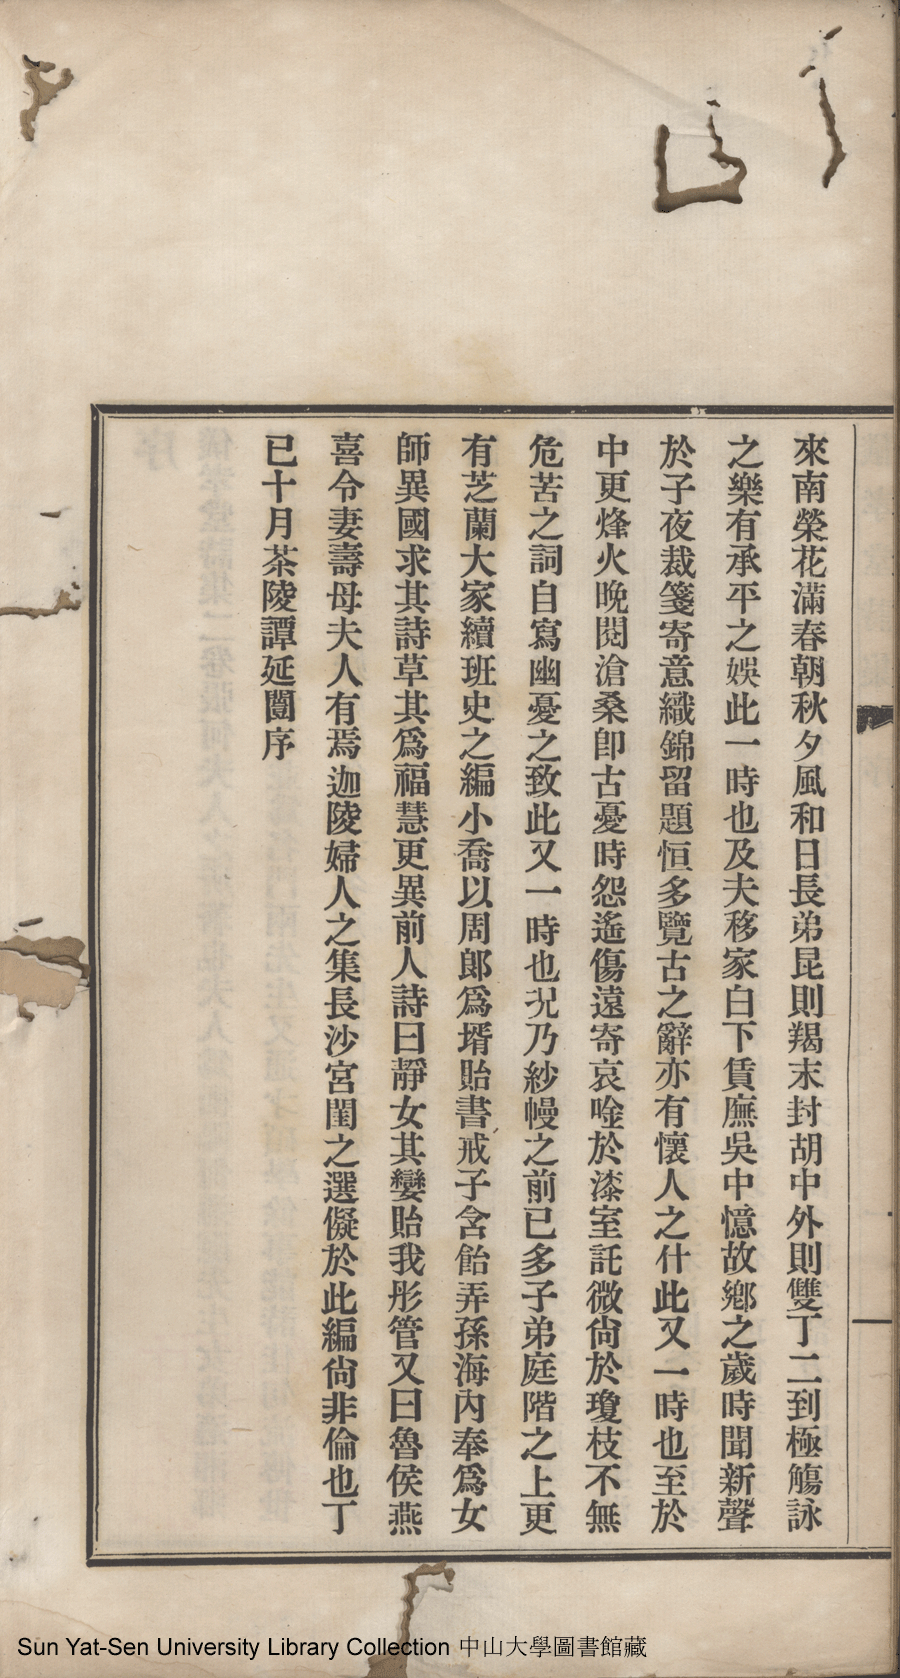 來南榮花滿春朝秋夕風和日長弟昆則羯末封胡中外則雙丁二到極觴詠
之樂有承平之娛此一時也及夫移家白下賃廡吳中憶故鄉之歲時聞新聲
於子夜裁箋寄意織錦留題恒多覽古之辭亦有懷人之什此又一時也至於
中更烽火晚閱滄桑卽古憂時怨遙傷遠寄哀唫於漆室託微尙於瓊枝不無
危苦之詞自寫幽憂之致此又一時也況乃紗幔之前已多子弟庭階之上更
有芝蘭大家續班史之編小喬以周郎爲壻貽書戒子含飴弄孫海內奉爲女
師異國求其詩草其爲福慧更異前人詩曰靜女其孌貽我彤管又曰魯侯燕
喜令妻壽母夫人有焉迦陵婦人之集長沙宮閨之選儗於此編尙非倫也丁
巳十月茶陵譚延闓序
Sun Yat-Sen University Library Collection 中山大學圖書館藏